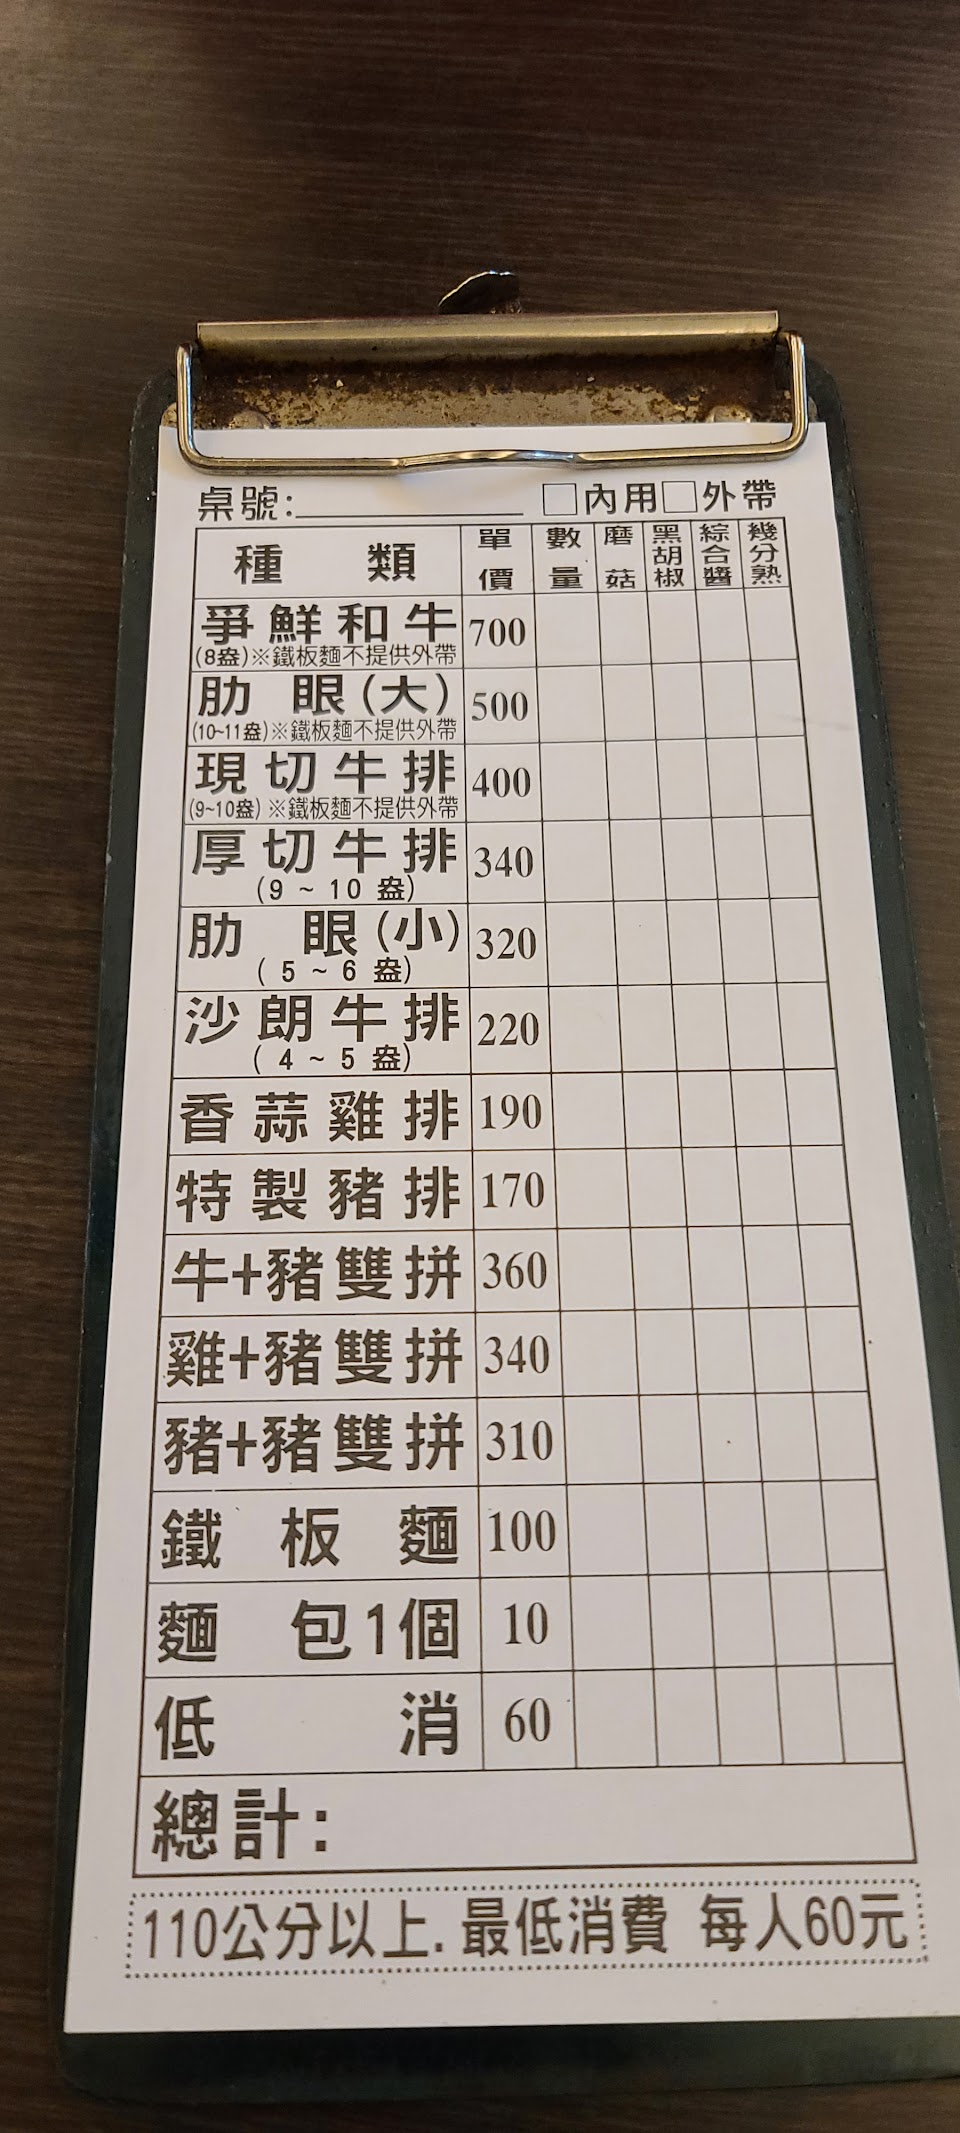 桌號:________ □內用□外帶
種類 單價 數量 磨菇 黑胡椒 綜合醬 幾分熟
爭鮮和牛 700
(8盎)※鐵板麵不提供外帶
肋眼(大) 500
(10~11盎)※鐵板麵不提供外帶
現切牛排 400
(9~10盎)※鐵板麵不提供外帶
厚切牛排 340
(9~10盎)
肋眼(小) 320
(5~6盎)
沙朗牛排 220
(4~5盎)
香蒜雞排 190
特製豬排 170
牛+豬雙拼 360
雞+豬雙拼 340
豬+豬雙拼 310
鐵板麵 100
麵包1個 10
低消 60
總計:
110公分以上.最低消費 每人60元